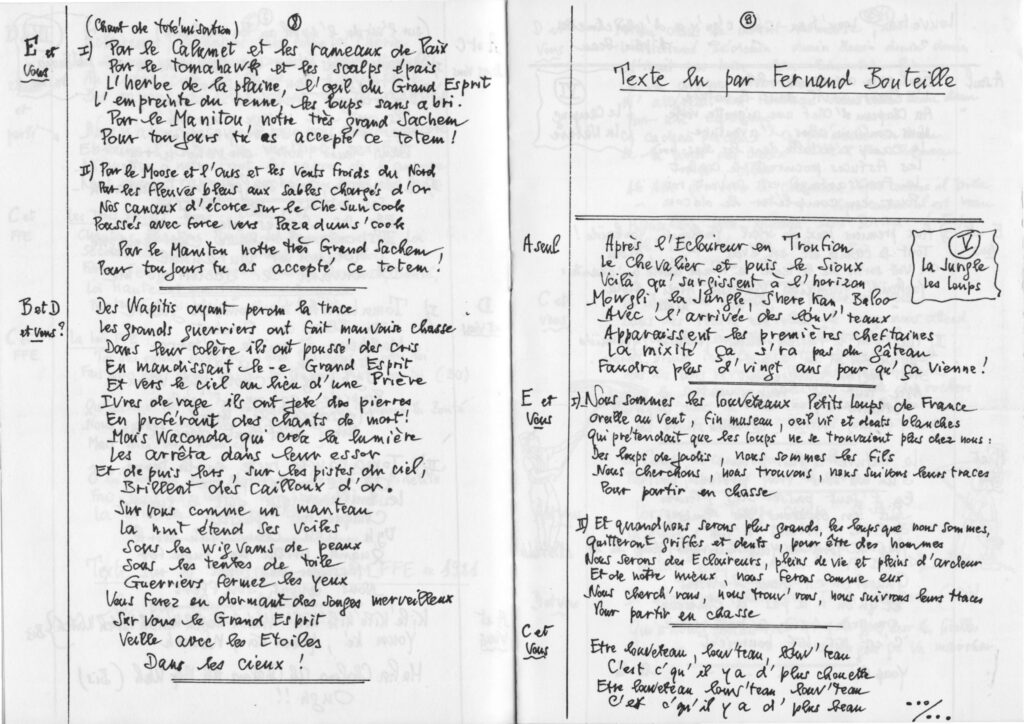 (Chant de totémisation) 8
E et Vous
I) Par le Calumet et les rameaux de Paix
Par le tomahawk et les scalps épais
L'herbe de la plaine, l'œil du Grand Esprit
L'empreinte du renne, les loups sans abri.
Par le Manitou notre très grand Sachem
Pour toujours tu as accepté ce totem !
II) Par le Moose et l'Ours et les vents froids du Nord
Par les fleuves bleus aux sables chargés d'or
Nos canaux d'écorce sur le Che sun' cook
Poussés avec force vers Pazadums'cook
Par le Manitou notre très Grand Sachem,
Pour toujours tu as accepté ce totem !
B et D
et vous ?
Des Wapitis ayant perdu la trace
Les grands guerriers ont fait mauvaise chasse
Dans leur colère ils ont poussé des cris
En maudissant le-e Grand Esprit
Et vers le ciel au lieu d'une Prière
Ivres de rage ils ont jeté des pierres
En proférant des chants de mort !
Mais Waconda qui créa la lumière
Les arrêta dans leur essor
Et depuis lors, sur les pistes du ciel,
Brillent des Cailloux d'or.
Sur vous comme un manteau
La nuit étend ses voiles
Sous les wigvams de peaux
Sous les tentes de toile
Guerriers fermez les yeux
Vous ferez en dormant des songes merveilleux
Sur vous le Grand Esprit
Veille avec les Etoiles
Dans les cieux !
9
Texte lu par Fernand Bouteille
A seul
Après l'Eclaireur en Troution
Le Chevalier et puis le Sioux
Voilà qu'surgissent à l'horizon
Mowgli, la Jungle, Shere Kan, Baloo
Avec l'arrivée des louv'teaux
Apparaissent les premières cheftaines
La mixité ça s'ra pas du gâteau
Faudra plus d'vingt ans pour qu'ça vienne !
V
la Jungle
les loups
E et
Vous
I) Nous sommes les louveteaux Petits loups de France
oreille au vent, fin museau, oeil vif et dents blanches
Qui prétendait que les loups ne se trouvaient plus chez nous :
Des loups de jadis, nous sommes les fils
Nous cherchons, nous trouvons, nous suivons leurs traces
Pour partir en chasse
II) Et quand nous serons plus grands, les loups que nous sommes,
Quitteront griffes et dents, pour être des hommes
Nous serons des Eclaireurs, pleins de vie et pleins d'ardeur
Et de notre mieux, nous ferons comme eux
Nous cherch'rons, nous trouv'rons, nous suivrons leurs traces
Pour partir en chasse
C et
Vous
Etre louveteau, louv'teau, louv'teau
C'est c'qu'il y a d'plus chouette
Etre louveteau louv'teau louv'teau
C'est c'qu'il y a d'plus beau
.../...